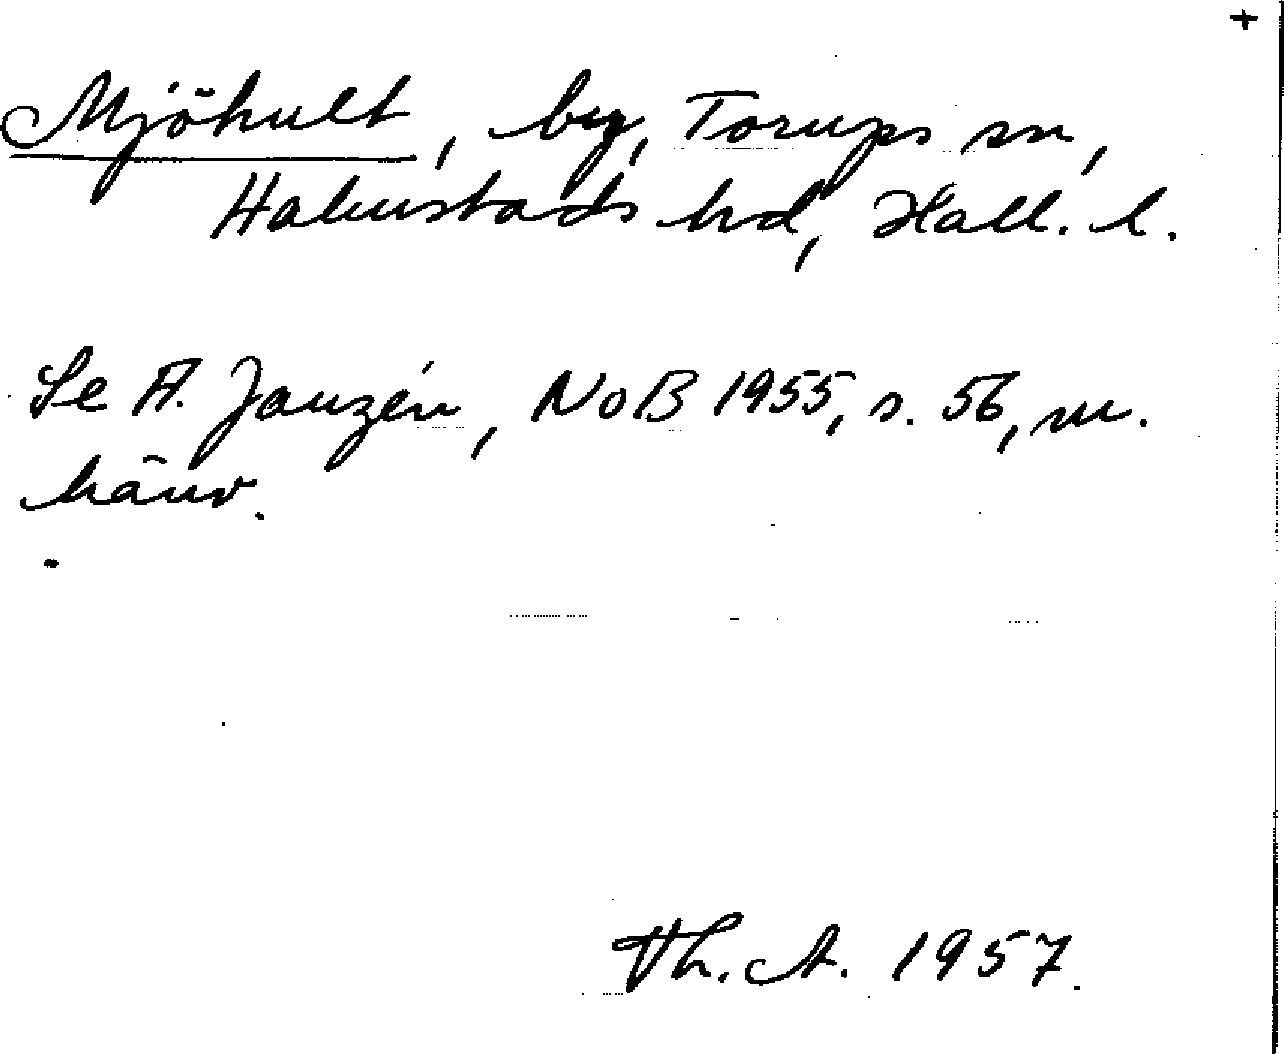 +
Mjöhult, by, Torups sn,
Halmstads hd, Hall. l.
Se A. Janzén, NoB 1955, s. 56, m.
hänv.
Th. A. 1957.